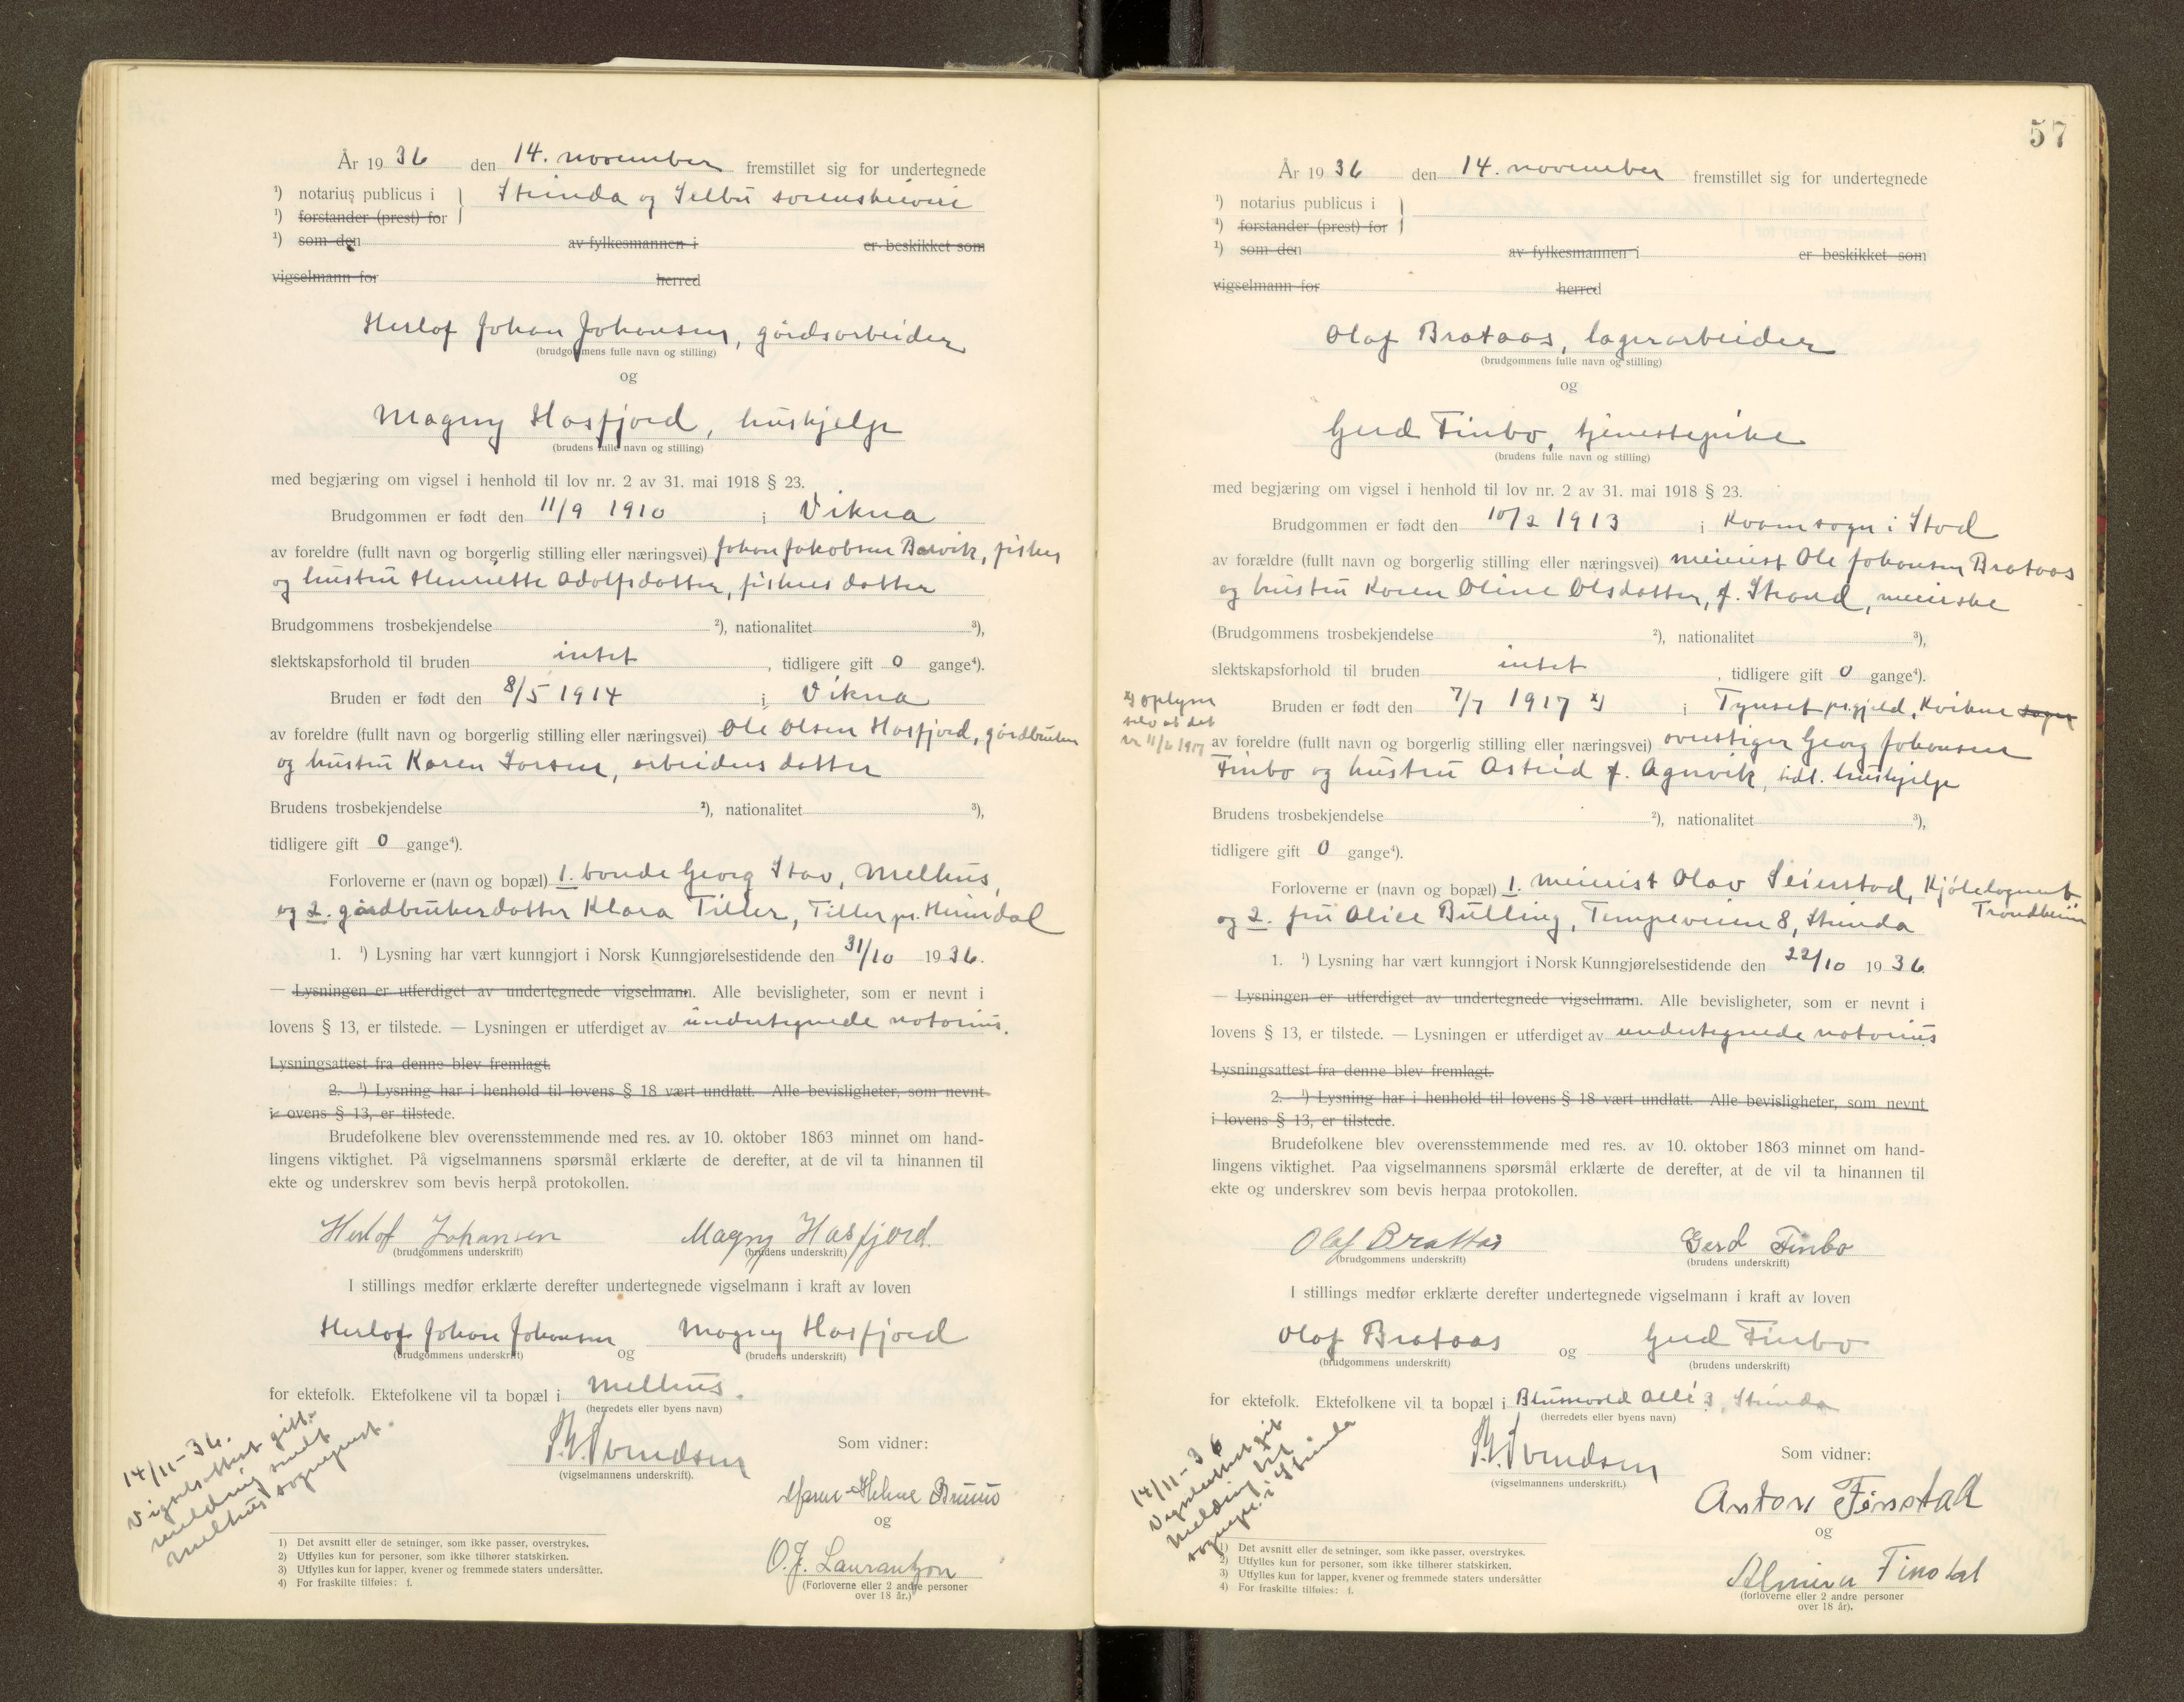 År 1936 den 14. november fremstillet sig for undertegnede
¹) notarius publicus i } Strinda og Selbu sorenskriveri
¹) forstander (prest) for
¹) som den av fylkesmannen i er beskikket som
vigselmann for herred
Herlof Johan Johansen, gårdsarbeider
(brudgommens fulle navn og stilling)
og
Magny Hasfjord, hushjelp
(brudens fulle navn og stilling)
med begjæring om vigsel i henhold til lov nr. 2 av 31. mai 1918 § 23.
Brudgommen er født den 11/9 1910 i Vikna
av foreldre (fullt navn og borgerlig stilling eller næringsvei) Johan Jakobsen Borvik, fisker
og hustru Henriette Adolfsdatter, fiskers datter
Brudgommens trosbekjendelse ²), nationalitet ³),
slektskapsforhold til bruden intet, tidligere gift 0 gange⁴).
Bruden er født den 8/5 1914 i Vikna
av foreldre (fullt navn og borgerlig stilling eller næringsvei) Ole Olsen Hasfjord, gårdbruker
og hustru Karen Larsen, arbeiders datter
Brudens trosbekjendelse ²), nationalitet ³),
tidligere gift 0 gange⁴).
Forloverne er (navn og bopæl) 1. bonde Georg Stav, Melhus,
og 2. gårdbrukerdatter Klara Tiller, Tiller pr. Heimdal
1. ¹) Lysning har vært kunngjort i Norsk Kunngjørelsestidende den 31/10 1936.
— Lysningen er utferdiget av undertegnede vigselmann. Alle bevisligheter, som er nevnt i
lovens § 13, er tilstede. — Lysningen er utferdiget av undertegnede notarius.
Lysningsattest fra denne blev fremlagt.
2. ¹) Lysning har i henhold til lovens § 18 vært undlatt. Alle bevisligheter, som nevnt
i ovens § 13, er tilstede.
Brudefolkene blev overensstemmende med res. av 10. oktober 1863 minnet om hand-
lingens viktighet. På vigselmannens spørsmål erklærte de derefter, at de vil ta hinannen til
ekte og underskrev som bevis herpå protokollen.
Herlof Johansen Magny Hasfjord.
(brudgommens underskrift) (brudens underskrift)
I stillings medfør erklærte derefter undertegnede vigselmann i kraft av loven
Herlof Johan Johansen og Magny Hasfjord
(brudgommens underskrift) (brudens underskrift)
for ektefolk. Ektefolkene vil ta bopæl i Melhus.
(herredets eller byens navn)
14/11-36.
Vigselsattest gitt.
melding sendt
Melhus sogneprest.
Svendsen
(vigselmannens underskrift).
Som vidner:
Helene Bruun
og
O.F. Laurantzon
(Forloverne eller 2 andre personer
over 18 år.)
1) Det avsnitt eller de setninger, som ikke passer, overstrykes.
2) Utfylles kun for personer, som ikke tilhører statskirken.
3) Utfylles kun for lapper, kvener og fremmede staters undersåtter.
4) For fraskilte tilføies: f.
57
År 1936 den 14. november fremstillet sig for undertegnede
¹) notarius publicus i }
¹) forstander (prest) for
¹) som den av fylkesmannen i er beskikket som
vigselmann for herred
Olaf Brataas, lagerarbeider
(brudgommens fulle navn og stilling)
og
Gerd Finbo, tjenestepike
(brudens fulle navn og stilling)
med begjæring om vigsel i henhold til lov nr. 2 av 31. mai 1918 § 23.
Brudgommen er født den 10/2 1913 i Kvam sogn i Stod
av forældre (fullt navn og borgerlig stilling eller næringsvei) meierist Ole Johansen Brataas
og hustru Karen Oline Olsdatter, f. Strand, meierske
(Brudgommens trosbekjendelse ²), nationalitet ³),
slektskapsforhold til bruden intet, tidligere gift 0 gange⁴).
Bruden er født den 7/7 1917 x) i Tynset prgjeld, Kvikne sogn
x) oplyser
selv at det
er 11/6 1917
av foreldre (fullt navn og borgerlig stilling eller næringsvei) overstiger Georg Johansen
Finbo og hustru Astrid f. Agnvik, tidl. hushjelp
Brudens trosbekjendelse ²), nationalitet ³),
tidligere gift 0 gange⁴).
Forloverne er (navn og bopæl) 1. meierist Olav Seierstad,
Trondheim
og 2. fru Alice Bulling, Tempeveien 8, Strinda
1. ¹) Lysning har vært kunngjort i Norsk Kunngjørelsestidende den 22/10 1936
— Lysningen er utferdiget av undertegnede vigselmann. Alle bevisligheter, som er nevnt i
lovens § 13, er tilstede. — Lysningen er utferdiget av undertegnede notarius
Lysningsattest fra denne blev fremlagt.
2. ¹) Lysning har i henhold til lovens § 18 vært undlatt. Alle bevisligheter, som nevnt
i lovens § 13, er tilstede.
Brudefolkene blev overensstemmende med res. av 10. oktober 1863 minnet om hand-
lingens viktighet. Paa vigselmannens spørsmål erklærte de derefter, at de vil ta hinannen til
ekte og underskrev som bevis herpaa protokollen.
Olaf Brattås Gerd Finbo
(brudgommens underskrift) (brudens underskrift)
I stillings medfør erklærte derefter undertegnede vigselmann i kraft av loven
Olaf Brataas og Gerd Finbo
(brudgommens underskrift) (brudens underskrift)
for ektefolk. Ektefolkene vil ta bopæl i Alle 3, Strinda
(herredets eller byens navn)
14/11-36
Vigselattest git
Melding til
sognepr. i Strinda
Svendsen
(vigselmannens underskrift.)
Som vidner:
Anton Finstad
og
Almira Finstad
(forloverne eller 2 andre personer
over 18 år).
1) Det avsnitt eller de setninger, som ikke passer, overstrykes.
2) Utfylles kun for personer, som ikke tilhører statskirken.
3) Utfylles kun for lapper, kvener og fremmede staters undersåtter
4) For fraskilte tilføies: f.